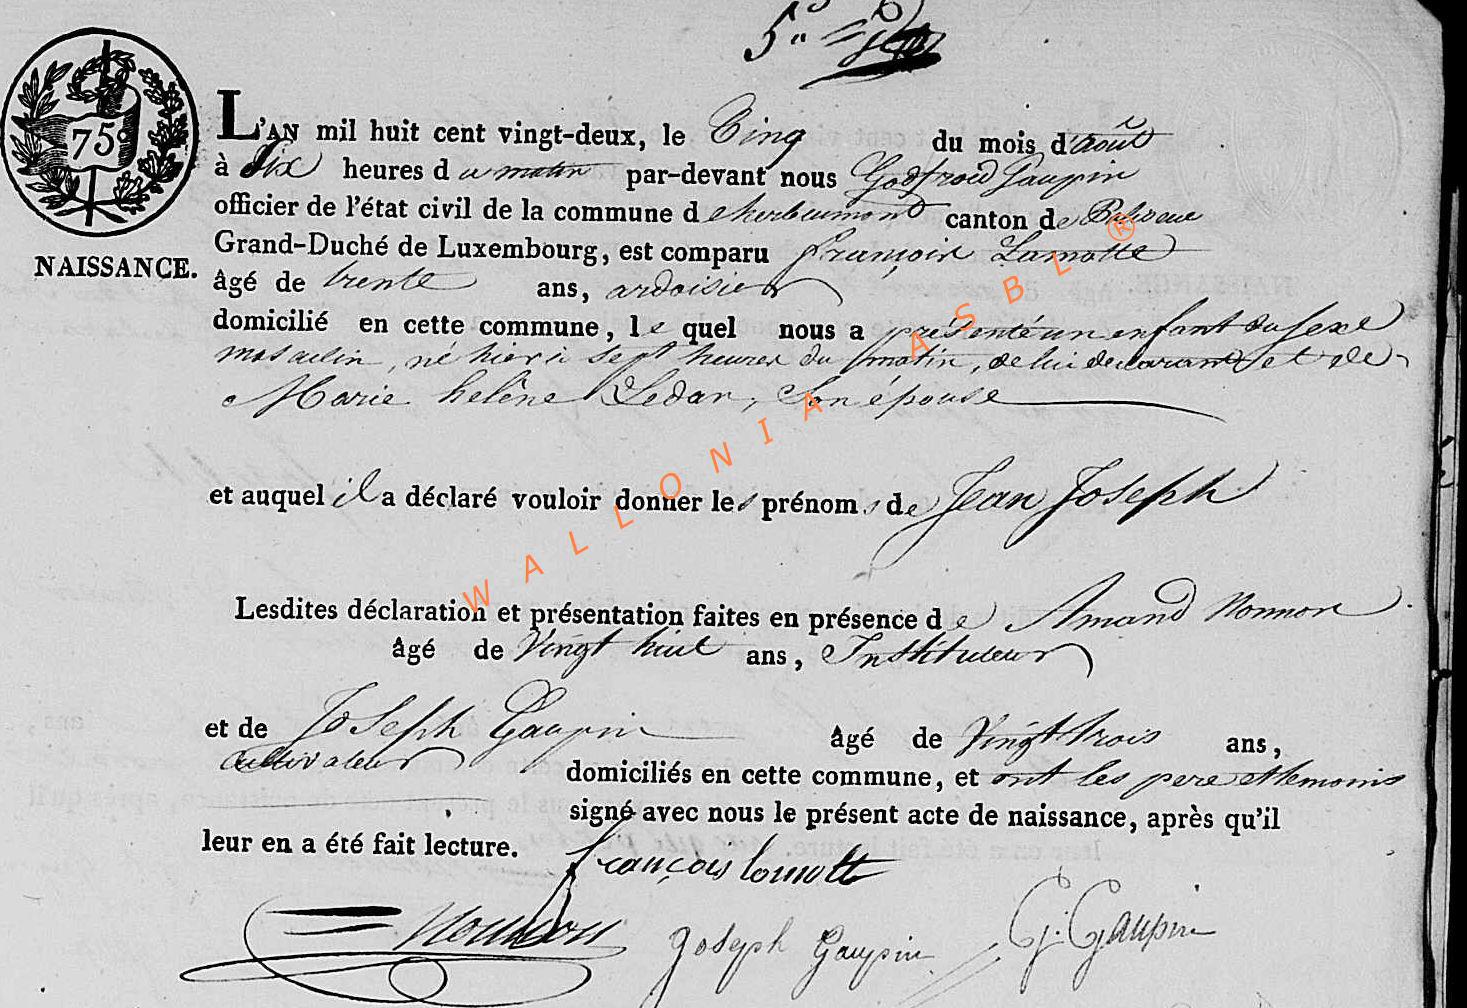 75
NAISSANCE.
L'AN mil huit cent vingt-deux, le Cinq du mois d'août
à dix heures du matin par-devant nous Godfroid Gaupin
officier de l'état civil de la commune d'herbeumont canton de Paliseul
Grand-Duché de Luxembourg, est comparu François Lamotte
âgé de trente ans, ardoisier
domicilié en cette commune, lequel nous a présenté un enfant du sexe
masculin, né hier à sept heures du matin, de lui declarant et de
Marie helène Ledan, Son épouse
et auquel il a déclaré vouloir donner les prénoms de Jean Joseph
Lesdites déclaration et présentation faites en présence de Amand Nonnon
âgé de Vingt huit ans, Instituteur
et de Joseph Gaupin âgé de Vingt trois ans,
Cultivateur domiciliés en cette commune, et ont les pere et temoins
signé avec nous le présent acte de naissance, après qu'il
leur en a été fait lecture.
françois lamotte
Nonnon Joseph Gaupin G. Gaupin
WALLONIA ASBL ®